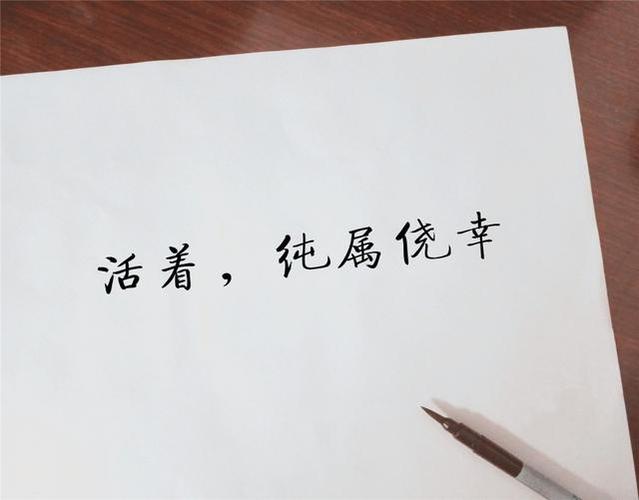 活着，纯属侥幸